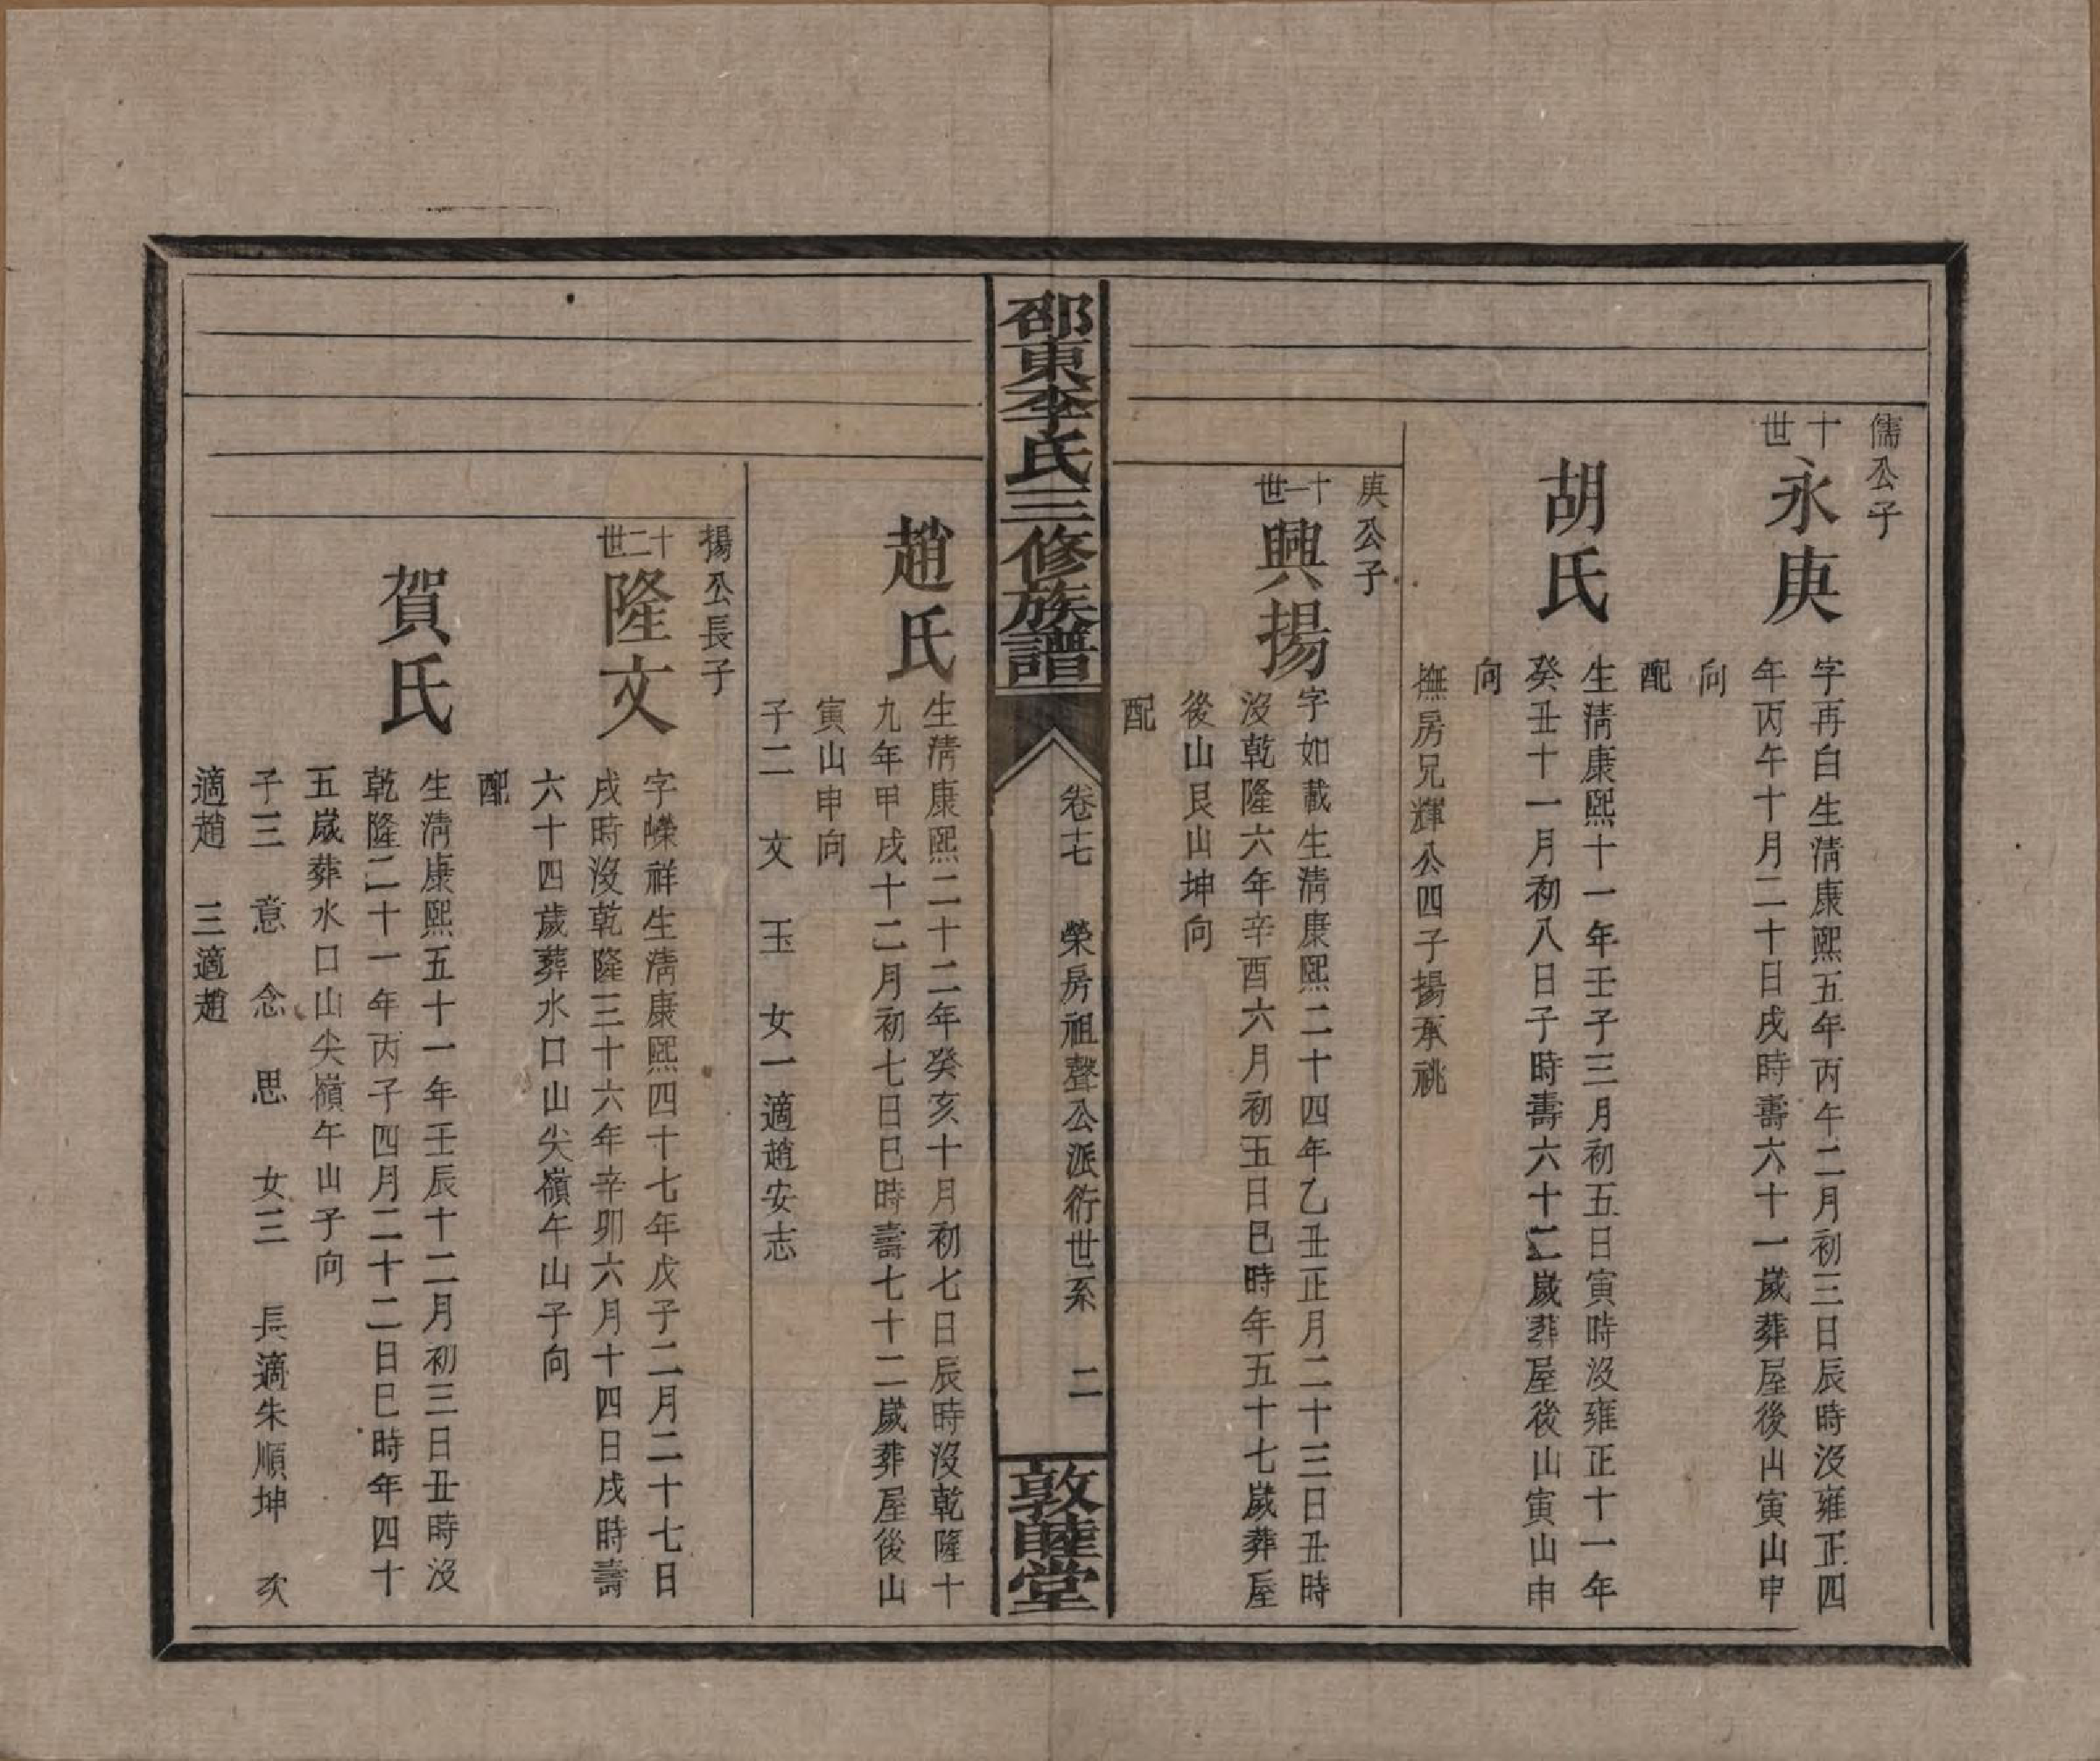 儒公子
十世
永庚
字再白生清康熙五年丙午二月初三日辰時沒雍正四
年丙午十月二十日戌時壽六十一歲葬屋後山寅山申
向
配
胡氏
生清康熙十一年壬子三月初五日寅時沒雍正十一年
癸丑十一月初八日子時壽六十二歲葬屋後山寅山申
向
撫房兄輝公四子揚承祧
庚公子
十一世
興揚
字如載生清康熙二十四年乙丑正月二十三日丑時
沒乾隆六年辛酉六月初五日巳時年五十七歲葬屋
後山艮山坤向
配
邵東李氏三修族譜
卷十七 榮房祖聲公派衍世系 二
敦睦堂
趙氏
生清康熙二十二年癸亥十月初七日辰時沒乾隆十
九年甲戌十二月初七日巳時壽七十二歲葬屋後山
寅山申向
子二 文 玉 女一適趙安志
揚公長子
十二世
隆文
字嶸祥生清康熙四十七年戊子二月二十七日
戌時沒乾隆三十六年辛卯六月十四日戌時壽
六十四歲葬水口山尖嶺午山子向
配
賀氏
生清康熙五十一年壬辰十二月初三日丑時沒
乾隆二十一年丙子四月二十二日巳時年四十
五歲葬水口山尖嶺午山子向
子三 意 念 思 女三 長適朱順坤 次
適趙 三適趙